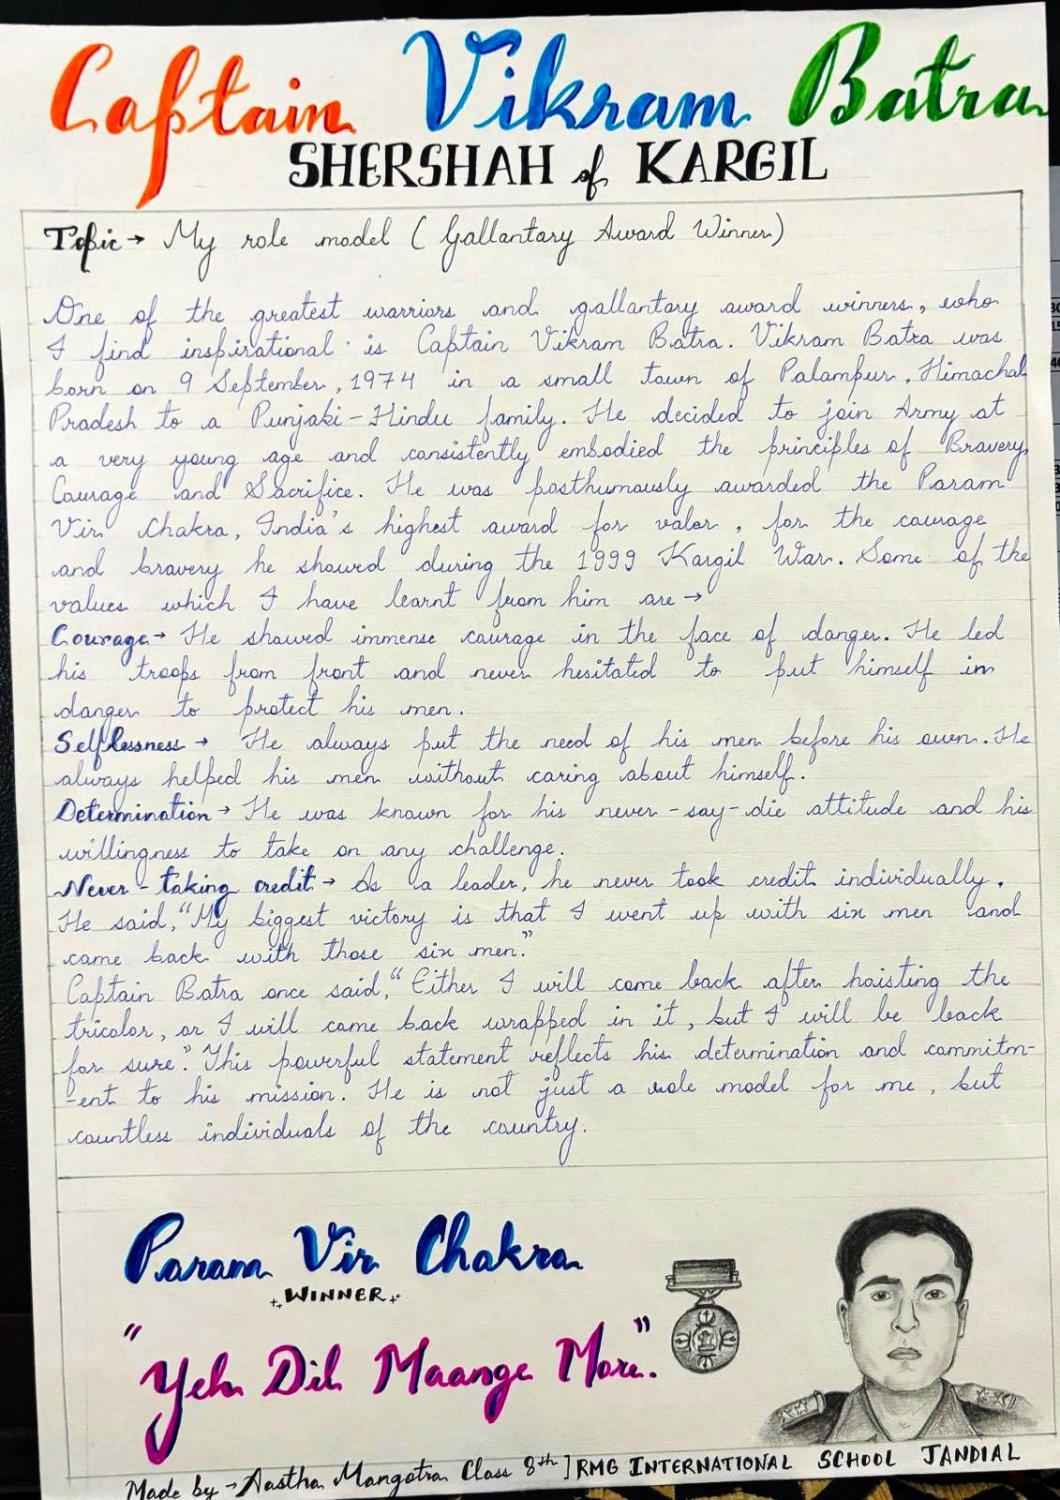 Captain Vikram Batra
SHERSHAH of KARGIL
Topic → My role model ( Gallantary Award Winner)
One of the greatest warriors and gallantary award winners, who
I find inspirational is Captain Vikram Batra. Vikram Batra was
born on 9 September, 1974 in a small town of Palampur, Himachal
Pradesh to a Punjabi-Hindu family. He decided to join Army at
a very young age and consistently embodied the principles of Bravery,
Courage and Sacrifice. He was posthumously awarded the Param
Vir Chakra, India's highest award for valor, for the courage
and bravery he showed during the 1999 Kargil War. Some of the
values which I have learnt from him are →
Courage → He showed immense courage in the face of danger. He led
his troops from front and never hesitated to put himself in
danger to protect his men.
Selflessness → He always put the need of his men before his own. He
always helped his men without caring about himself.
Determination → He was known for his never-say-die attitude and his
willingness to take on any challenge.
Never-taking credit → As a leader, he never took credit individually.
He said, "My biggest victory is that I went up with six men and
came back with those six men."
Captain Batra once said, "Either I will come back after hoisting the
tricolor, or I will come back wrapped in it, but I will be back
for sure". This powerful statement reflects his determination and commitm-
-ent to his mission. He is not just a role model for me, but
countless individuals of the country.
Param Vir Chakra
WINNER
"Yeh Dil Maange More."
Made by → Aastha Mangotra Class 8th ] RMG INTERNATIONAL SCHOOL JANDIAL